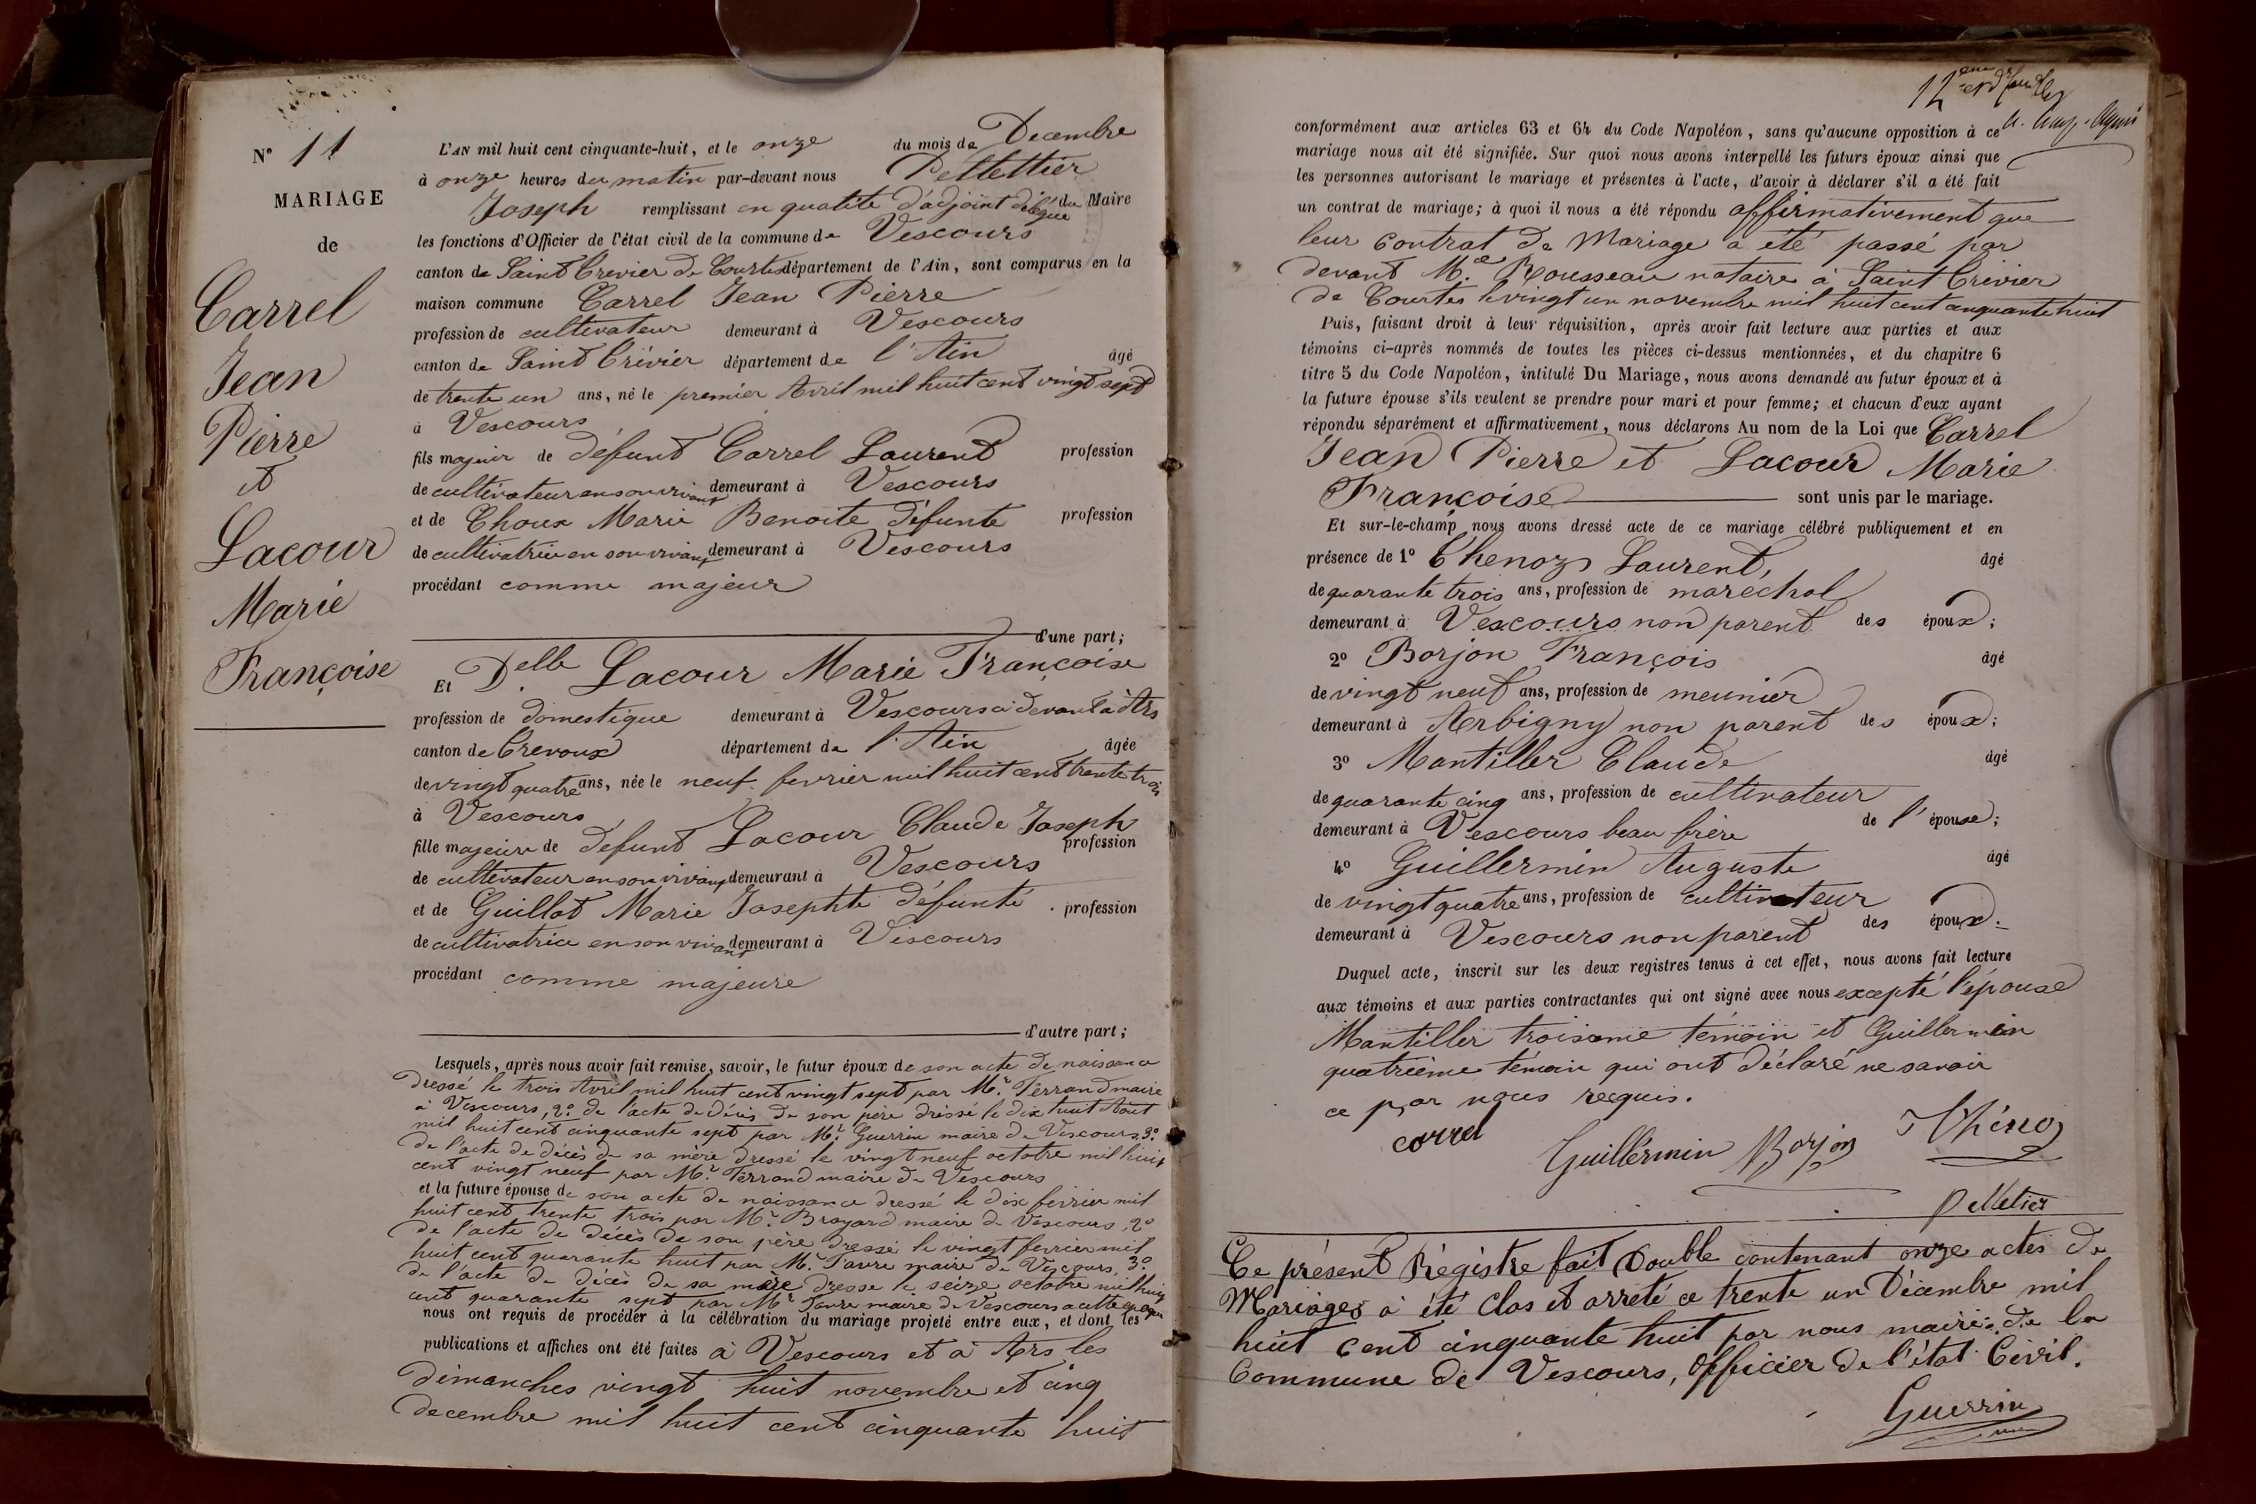 N° 11
MARIAGE
de
Carrel
Jean
Pierre
et
Lacour
Marie
Françoise
L'AN mil huit cent cinquante-huit, et le onze du mois de Decembre
à onze heures du matin par-devant nous Pelletier
Joseph remplissant en qualité d'adjoint délégué du Maire
les fonctions d'Officier de l'état civil de la commune de Vescours
canton de Saint Trevier de Courtes département de l'Ain, sont comparus en la
maison commune Carrel Jean Pierre
profession de cultivateur demeurant à Vescours
canton de Saint Trévier département de l'Ain âgé
de trente un ans, né le premier Avril mil huit cent vingt sept
à Vescours
fils majeur de défunt Carrel Laurent profession
de cultivateur en son vivant demeurant à Vescours
et de Choux Marie Benoite défunte profession
de cultivatrice en son vivant demeurant à Vescours
procédant comme majeur
d'une part;
Et Delle Lacour Marie Françoise
profession de domestique demeurant à Vescours ci devant à Ars
canton de Trevoux département de l'Ain âgée
de vingt quatre ans, née le neuf fevrier mil huit cent trente trois
à Vescours
fille majeure de défunt Lacour Claude Joseph profession
de cultivateur en son vivant demeurant à Vescours
et de Guillot Marie Josephte défunte profession
de cultivatrice en son vivant demeurant à Vescours
procédant comme majeure
d'autre part;
Lesquels, après nous avoir fait remise, savoir, le futur époux de son acte de naissance
dressé le trois Avril mil huit cent vingt sept par Mr. Ferrand maire
à Vescours, 2° de l'acte de décès de son père dressé le dix huit Août
mil huit cent cinquante sept par Mr. Guerrin maire de Vescours, 3°
de l'acte de décès de sa mère dressé le vingt neuf octobre mil huit
cent vingt neuf par Mr. Ferrand maire de Vescours
et la future épouse de son acte de naissance dressé le dix fevrier mil
huit cent trente trois par Mr. Brayard maire de Vescours, 2°
de l'acte de décès de son père dressé le vingt fevrier mil
huit cent quarante huit par Mr. Favre maire de Vescours, 3°
de l'acte de décès de sa mère dressé le seize octobre mil huit
cent quarante sept par Mr Favre maire de Vescours a cette epoque
nous ont requis de procéder à la célébration du mariage projeté entre eux, et dont les
publications et affiches ont été faites à Vescours et à Ars les
dimanches vingt huit novembre et cinq
decembre mil huit cent cinquante huit
12eme
conformément aux articles 63 et 64 du Code Napoléon, sans qu'aucune opposition à ce
mariage nous ait été signifiée. Sur quoi nous avons interpellé les futurs époux ainsi que
les personnes autorisant le mariage et présentes à l'acte, d'avoir à déclarer s'il a été fait
un contrat de mariage; à quoi il nous a été répondu affirmativement que
leur contrat de Mariage a été passé par
devant Me. Rousseau notaire à Saint Trivier
de Courtes le vingt un novembre mil huit cent cinquante huit
Puis, faisant droit à leur réquisition, après avoir fait lecture aux parties et aux
témoins ci-après nommés de toutes les pièces ci-dessus mentionnées, et du chapitre 6
titre 5 du Code Napoléon, intitulé Du Mariage, nous avons demandé au futur époux et à
la future épouse s'ils veulent se prendre pour mari et pour femme; et chacun d'eux ayant
répondu séparément et affirmativement, nous déclarons Au nom de la Loi que Carrel
Jean Pierre et Lacour Marie
Françoise sont unis par le mariage.
Et sur-le-champ nous avons dressé acte de ce mariage célébré publiquement et en
présence de 1° Chenoz Laurent, âgé
de quarante trois ans, profession de maréchal
demeurant à Vescours non parent des époux;
2° Borjon François âgé
de vingt neuf ans, profession de meunier
demeurant à Arbigny non parent des époux;
3° Mantiller Claude âgé
de quarante cinq ans, profession de cultivateur
demeurant à Vescours beau frère de l'épouse;
4° Guillermin Auguste âgé
de vingt quatre ans, profession de cultivateur
demeurant à Vescours non parent des époux.
Duquel acte, inscrit sur les deux registres tenus à cet effet, nous avons fait lecture
aux témoins et aux parties contractantes qui ont signé avec nous excepté l'épouse
Mantiller troisième témoin et Guillermin
quatrième témoin qui ont déclaré ne savoir
ce par nous requis.
correl Guillérmin Borjon Chénoz
Pelletier
Ce présent Régistre fait Double contenant onze actes de
Mariages à été clos et arreté ce trente un Décembre mil
huit cent cinquante huit par nous maire de la
Commune de Vescours, Officier de l'état Civil.
Guerrin